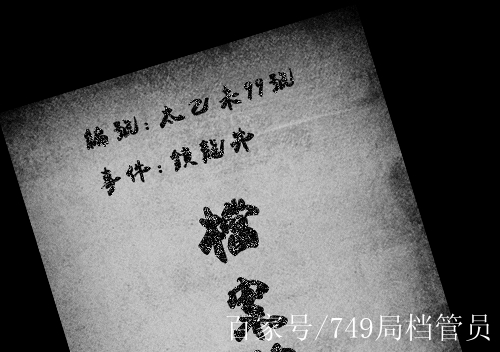 編號:太乙未99號
事件:鎖龍井
檔
案
百家号/749局档管员